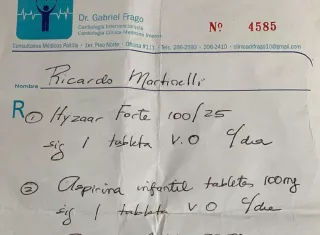 Dr. Gabriel Frago
Cardiología Intervencionista
Cardiología Clínica-Medicina Interna
Nº 4585
Consultorios Médicos Paitilla - 1er. Piso Norte - Oficina #113 - Tels.: 206-2580 - 206-2410 -
Nombre Ricardo Martinelli
R
① Hyzaar Forte 100/25
sig 1 tableta V.O c/dia
② Aspirina infantil tabletes 100mg
sig 1 tableta V.O c/dia